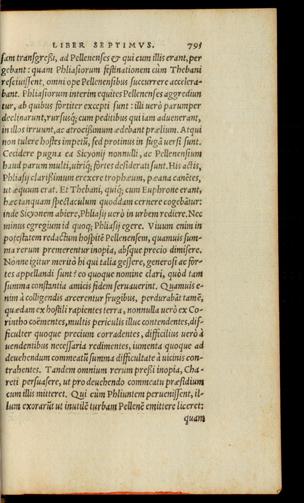 LIBER SEPTIMVS. 795
sam transgressi, ad Pellenenses & qui cum illis erant, per
gebant: quam Phliasiorum festinationem cùm Thebani
resciuissent, omni ope Pellenensibus succurrere accelera-
bant. Phliasiorum interim equites Pellenenses aggrediun
tur, ab quibus fortiter excepti sunt: illi uerò parumper
declinarunt, rursusq́; cum peditibus qui iam aduenerant,
in illos irruunt, ac atrocissimum ædebant prælium. At qui
non tulere hostes impetũ, sed protinus in fugã uersi sunt.
Cecidere pugna ea Sicyonij nonnulli, ac Pellenensium
haud parum multi, uiriq́; fortes desiderati sunt. His actis,
Phliasij clarissimum erexere trophæum, pæana canẽtes,
ut æquum erat. Et Thebani, quiq́; cum Euphrone erant,
hæc tanquam spectaculum quoddam cernere cogebãtur:
inde Sicyonem abiere, Phliasij uerò in urbem rediere. Nec
minus egregium id quoq; Phliasij egere. Viuum enim in
potestatem redactum hospitẽ Pellenensem, quamuis sum-
ma rerum premerentur inopia, absque precio dimisere.
Nonne igitur meritò hi qui talia gessere, generosi ac for-
tes appellandi sunt? eo quoque nomine clari, quòd tam
summa constantia amicis fidem seruauerint. Quamuis e-
nim à colligendis arcerentur frugibus, perdurabãt tamẽ,
quædam ex hostili rapientes terra, nonnulla uerò ex Co-
rintho coëmentes, multis periculis illuc contendentes, dif-
ficulter quoque precium corradentes, difficilius uerò à
uendentibus necessaria redimentes, iumenta quoque ad
deuehendum commeatũ summa difficultate à uicinis con-
trahentes. Tandem omnium rerum pressi inopia, Cha-
reti persuasere, ut pro deuehendo commeatu præsidium
eum illis mitteret. Qui cùm Phliuntem peruenissent, il-
lum exorarũt ut inutilẽ turbam Pellenẽ emittere liceret:
quam